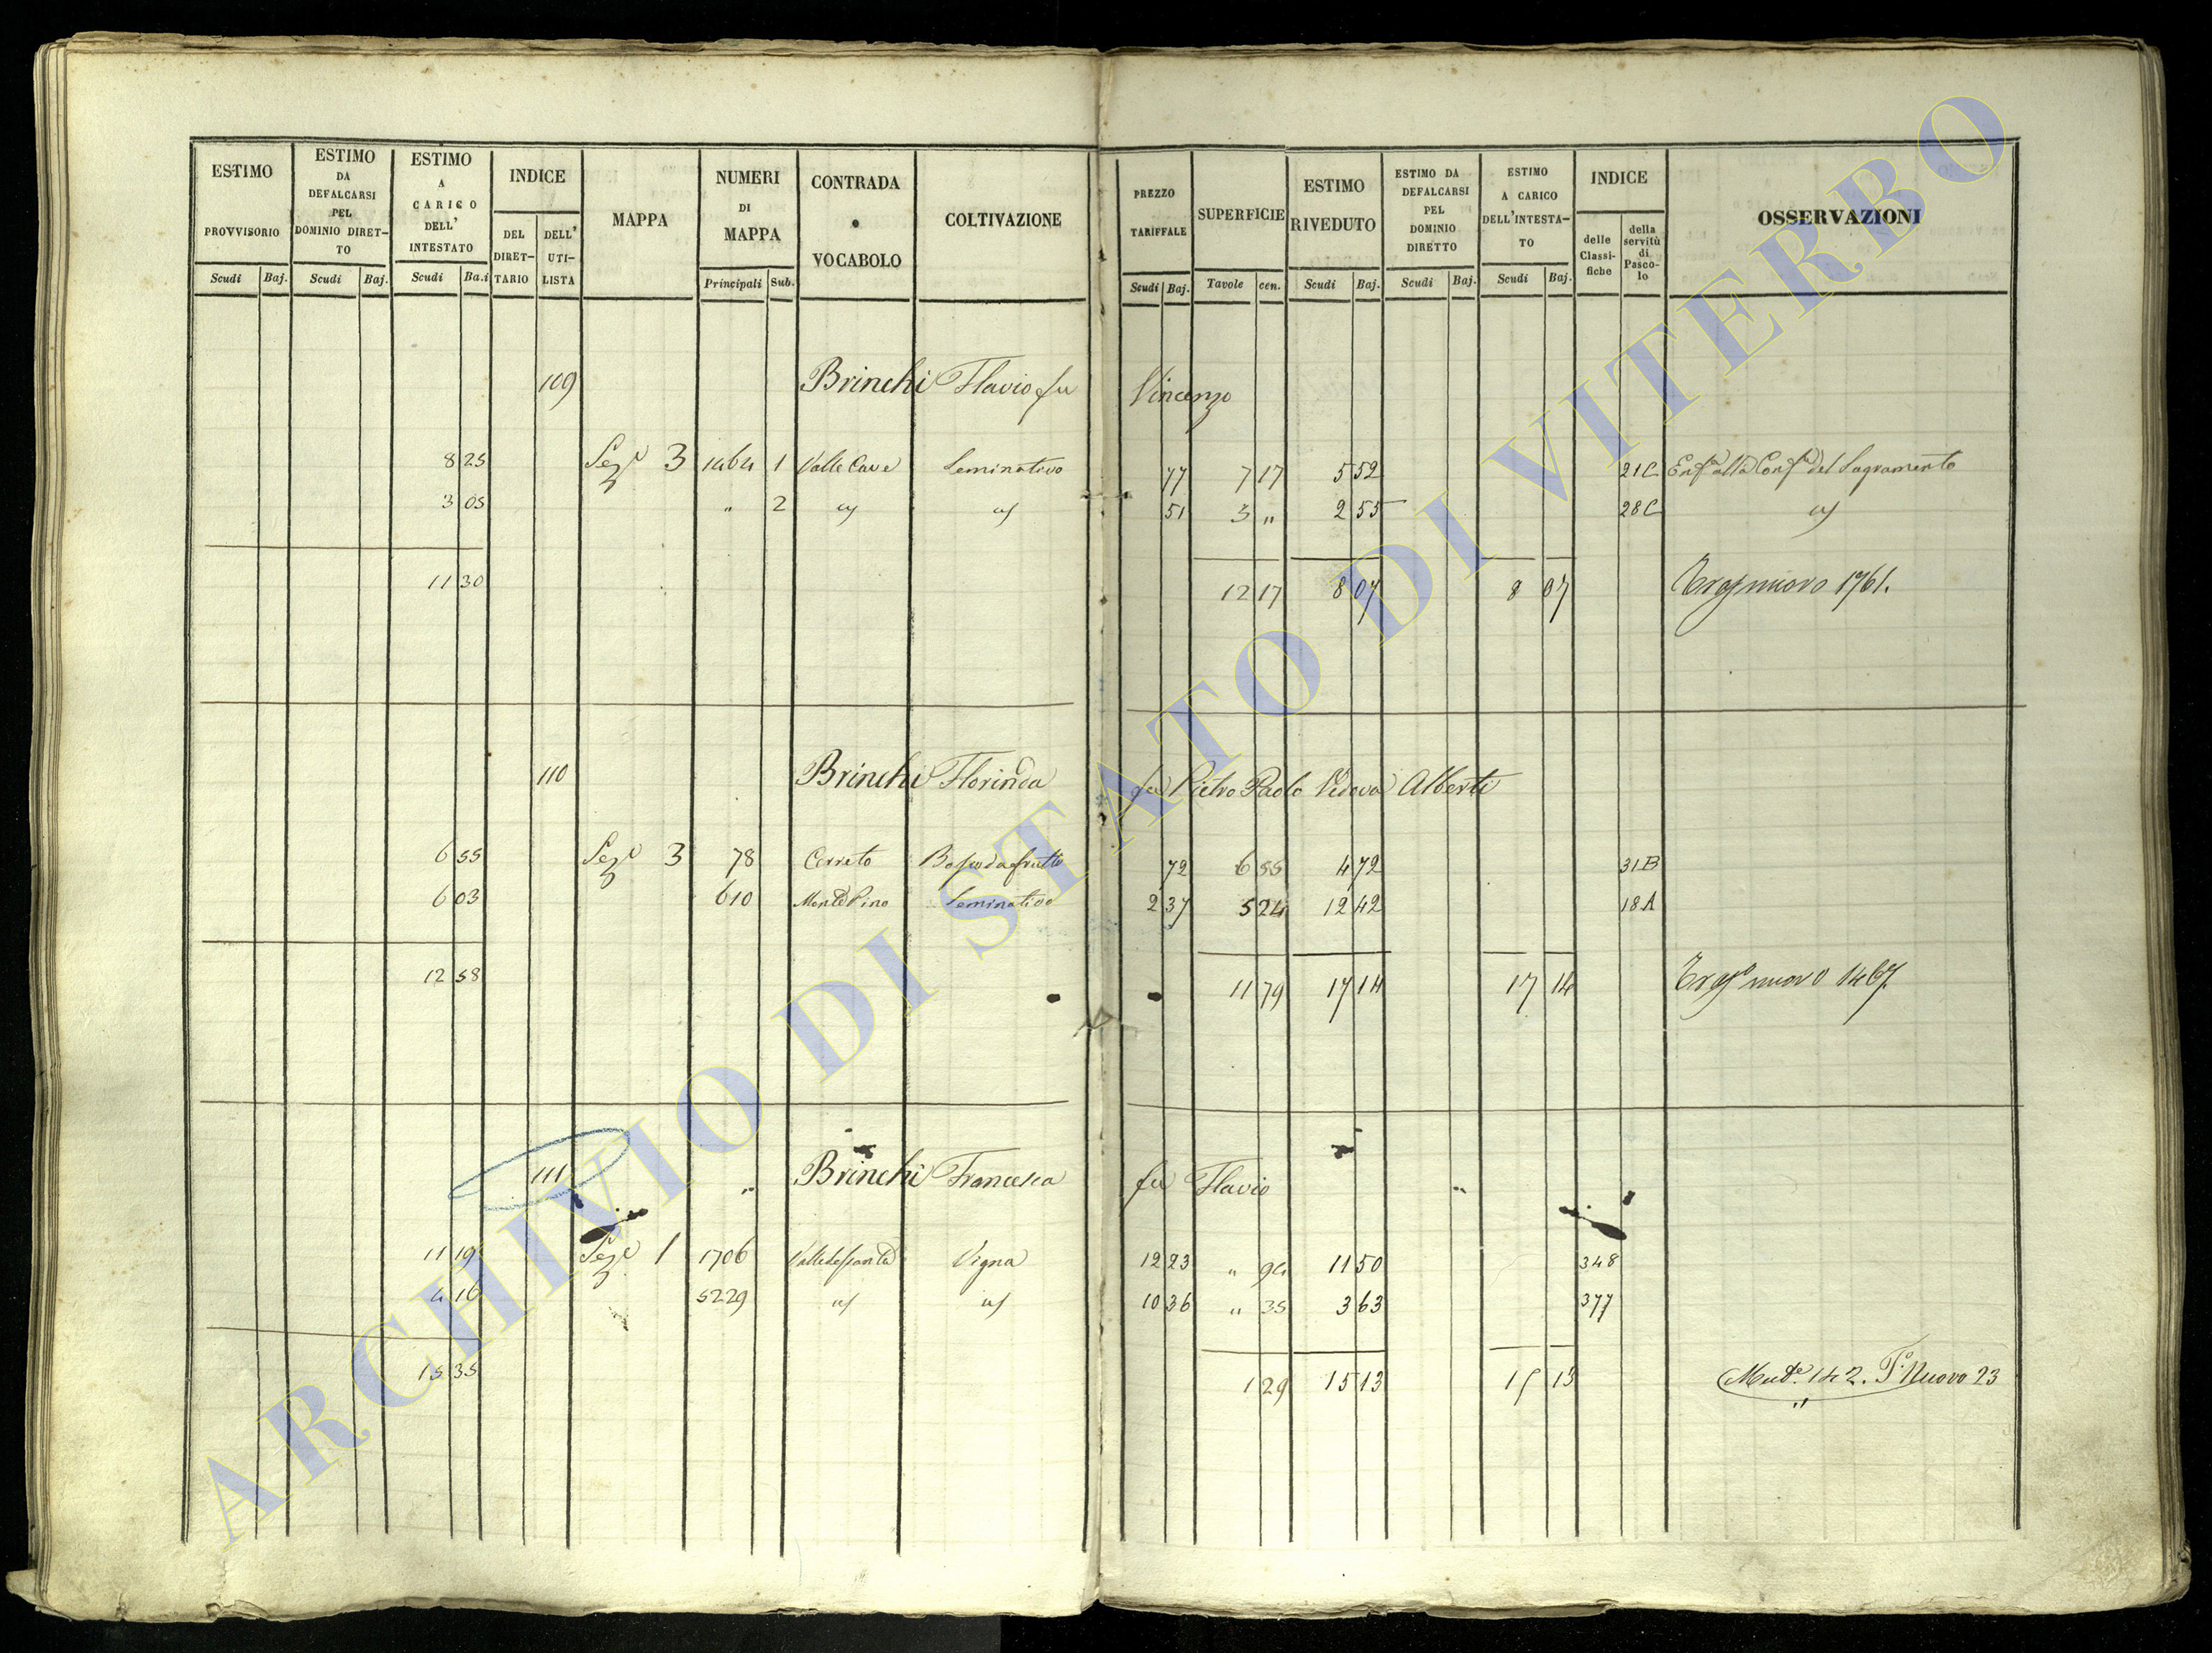 ESTIMO PROVVISORIO Scudi Baj.
ESTIMO DA DEFALCARSI PEL DOMINIO DIRET-TO Scudi Baj.
ESTIMO A CARICO DELL' INTESTATO Scudi Ba.i
INDICE DEL DIRET-TARIO DELL' UTI-LISTA
MAPPA
NUMERI DI MAPPA Principali Sub.
CONTRADA o VOCABOLO
COLTIVAZIONE
PREZZO TARIFFALE Scudi Baj.
SUPERFICIE Tavole cen.
ESTIMO RIVEDUTO Scudi Baj.
ESTIMO DA DEFALCARSI PEL DOMINIO DIRETTO Scudi Baj.
ESTIMO A CARICO DELL'INTESTA-TO Scudi Baj.
INDICE delle Classi-fiche della servitù di Pasco-lo
OSSERVAZIONI
109 Brinchi Flavio fu Vincenzo
8 25 Sez.e 3 1464 1 Valle Cave Seminativo 77 7 17 5 52 21C alla del Sagramento
3 05 " 2 51 3 " 2 55 28C
11 30 12 17 8 07 8 07 nuovo 1761.
110 Brinchi Florinda fu Pietro Paolo Vedova Alberti
6 55 Sez.e 3 78 Cerreto Bosco da frutto 72 6 55 4 72 31B
6 03 610 Monte Pino Seminativo 2 37 5 24 12 42 18A
12 58 11 79 17 14 17 14 nuovo 1467
111 " Brinchi Francesca fu Flavio
11 19 Sez.e 1 1706 Vigna 12 23 " 94 11 50 348
4 16 5229 10 36 " 35 3 63 377
15 35 1 29 15 13 15 13 142. Nuovo 23
ARCHIVIO DI STATO DI VITERBO